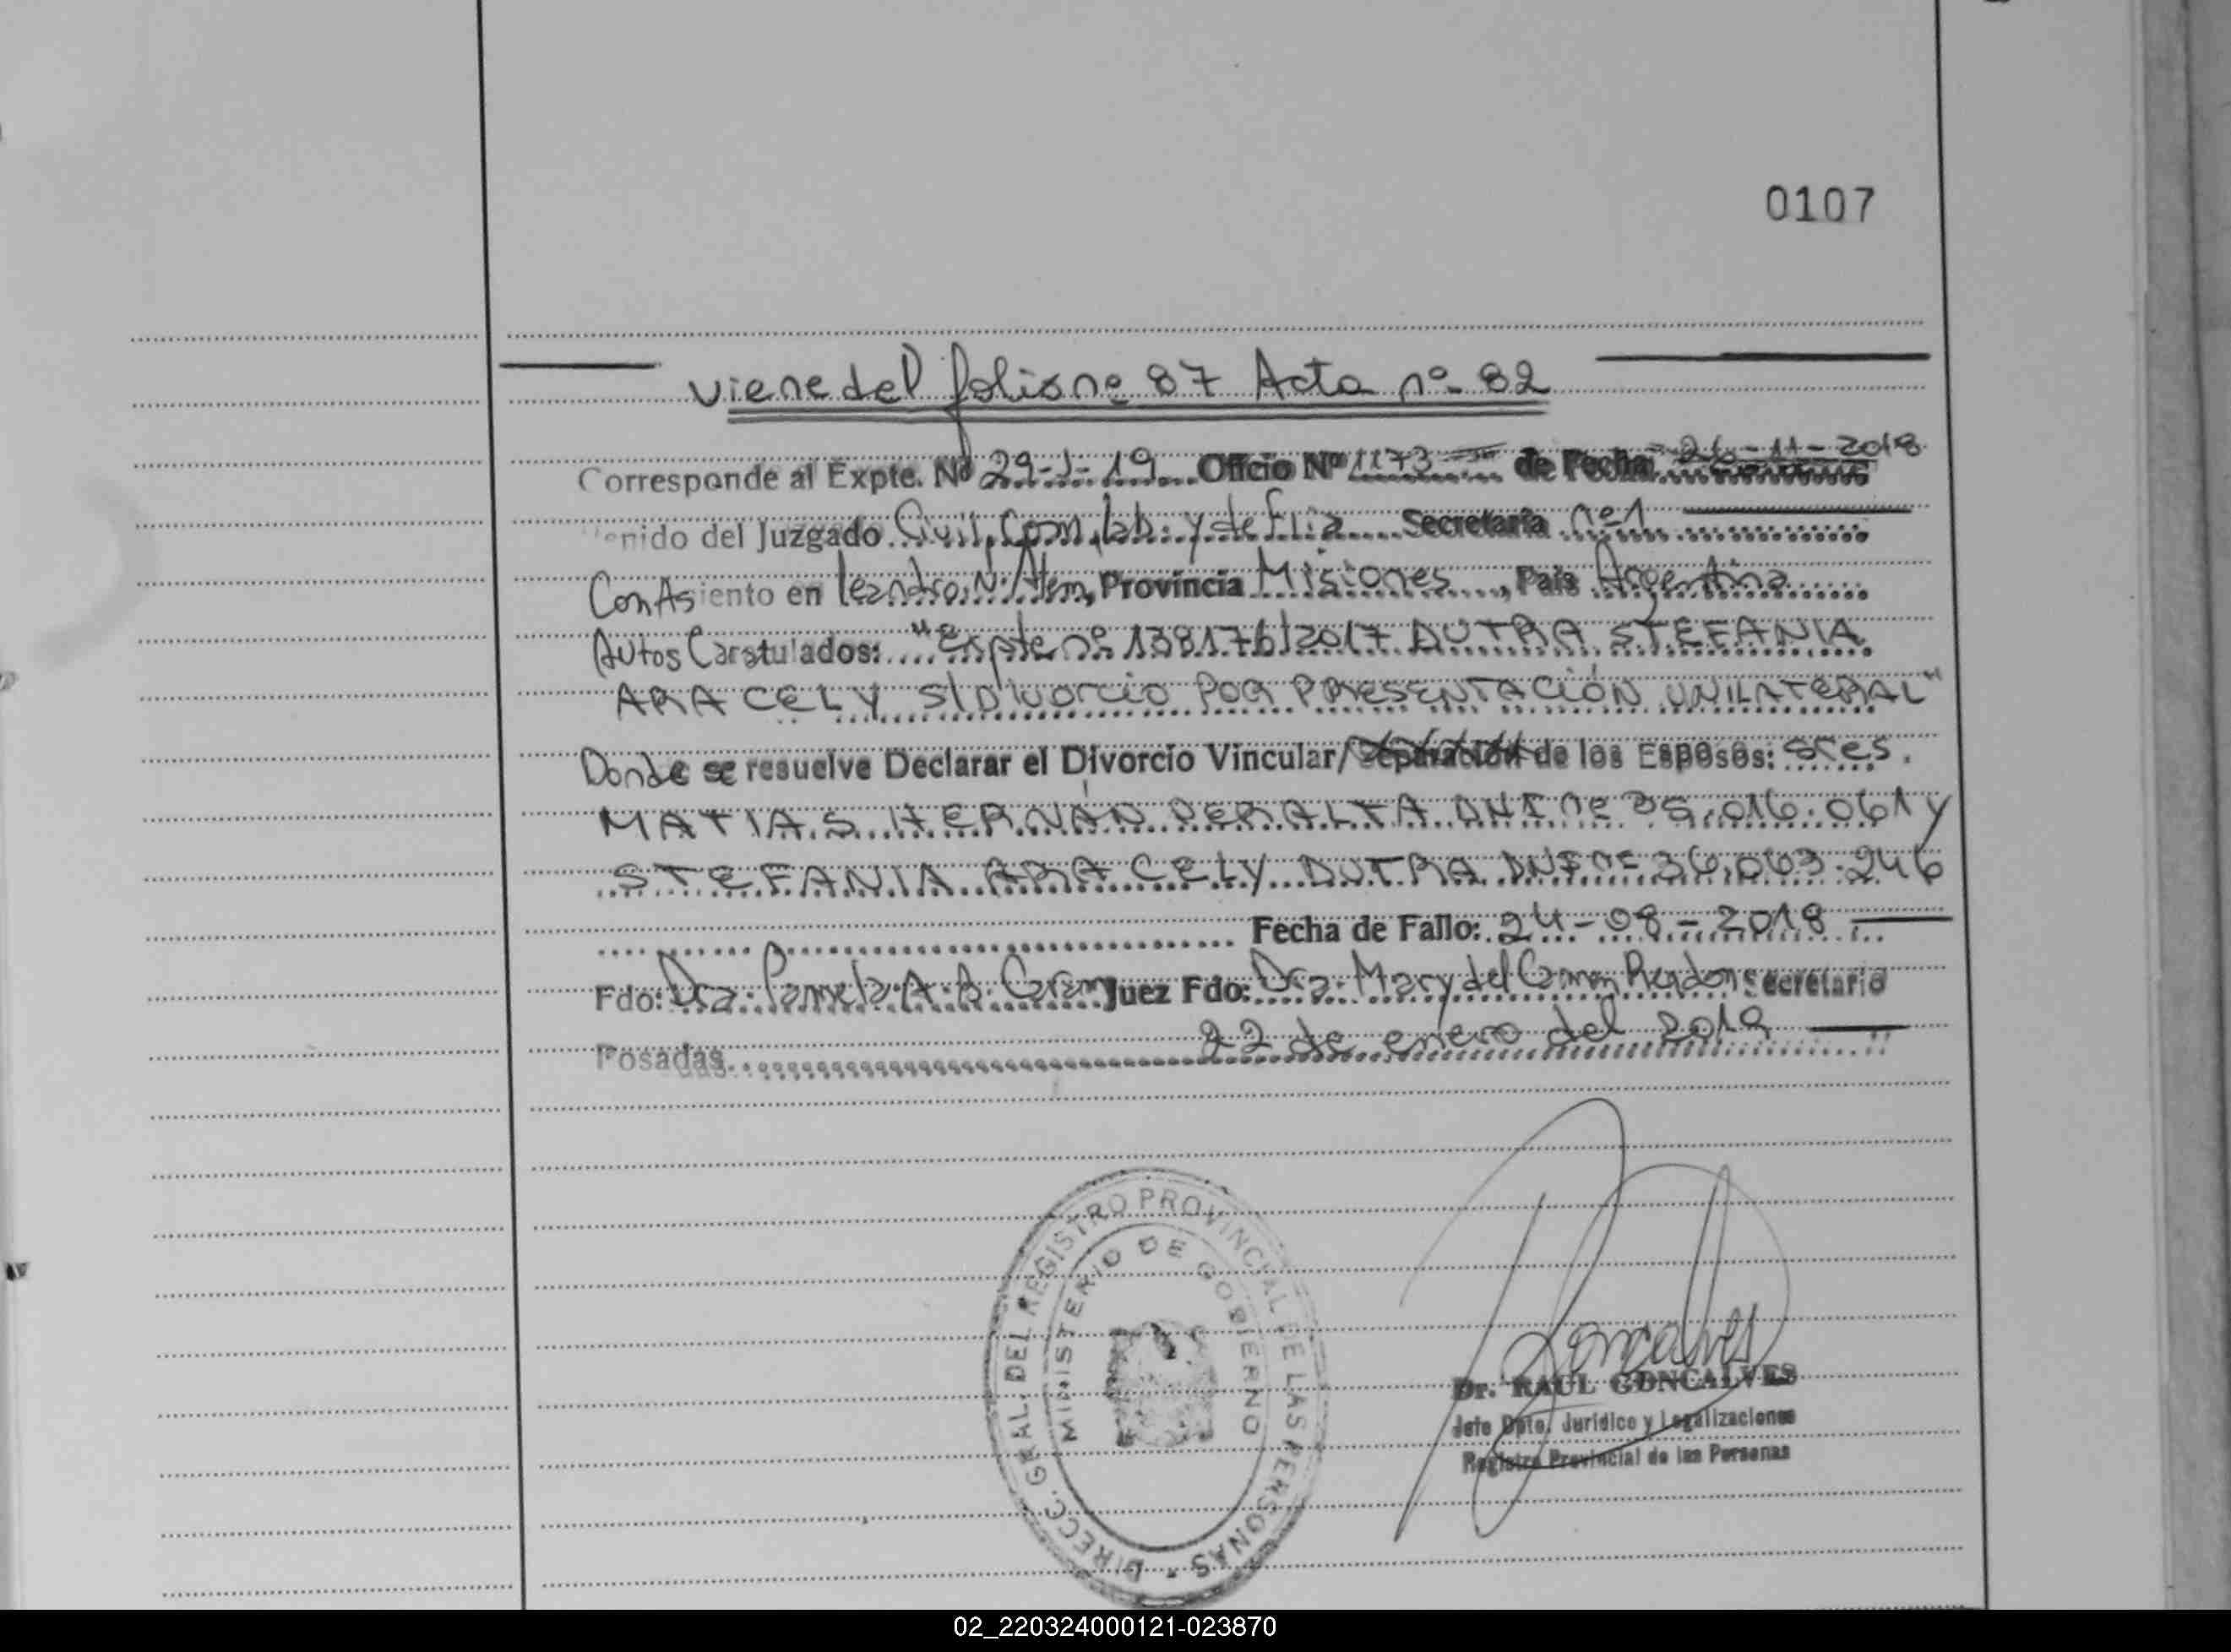 0107
viene del folio nº 87 Acta nº 82
Corresponde al Expte. Nº 29-J-19 Oficio Nº 1173 de Fecha 26-11-2018
enido del Juzgado Civil, Com, lab. y de Flia Secretaría nº 1
Con Asiento en leandro N. Alem, Provincia Misiones, País Argentina
Autos Caratulados: "Expte nº 138176/2017 DUTRA STEFANIA
ARACELY S/DIVORCIO POR PRESENTACIÓN UNILATERAL"
Donde se resuelve Declarar el Divorcio Vincular/Separación de los Esposos: sres.
MATIAS HERNÁN PERALTA DNI nº 35.016.061 y
STEFANIA ARACELY DUTRA DNI nº 36.063.246
Fecha de Fallo: 24-08-2018
Fdo: Dra. Pamela A. B. Juez Fdo: Dra. Mary del Carmen Rendon Secretario
Posadas 22 de enero del 2019
DIRECC. GRAL. DEL REGISTRO PROVINCIAL DE LAS PERSONAS
MINISTERIO DE GOBIERNO
Goncalves
Dr. RAUL GONCALVES
Jefe Dpto. Jurídico y Legalizaciones
Registro Provincial de las Personas
02_220324000121-023870